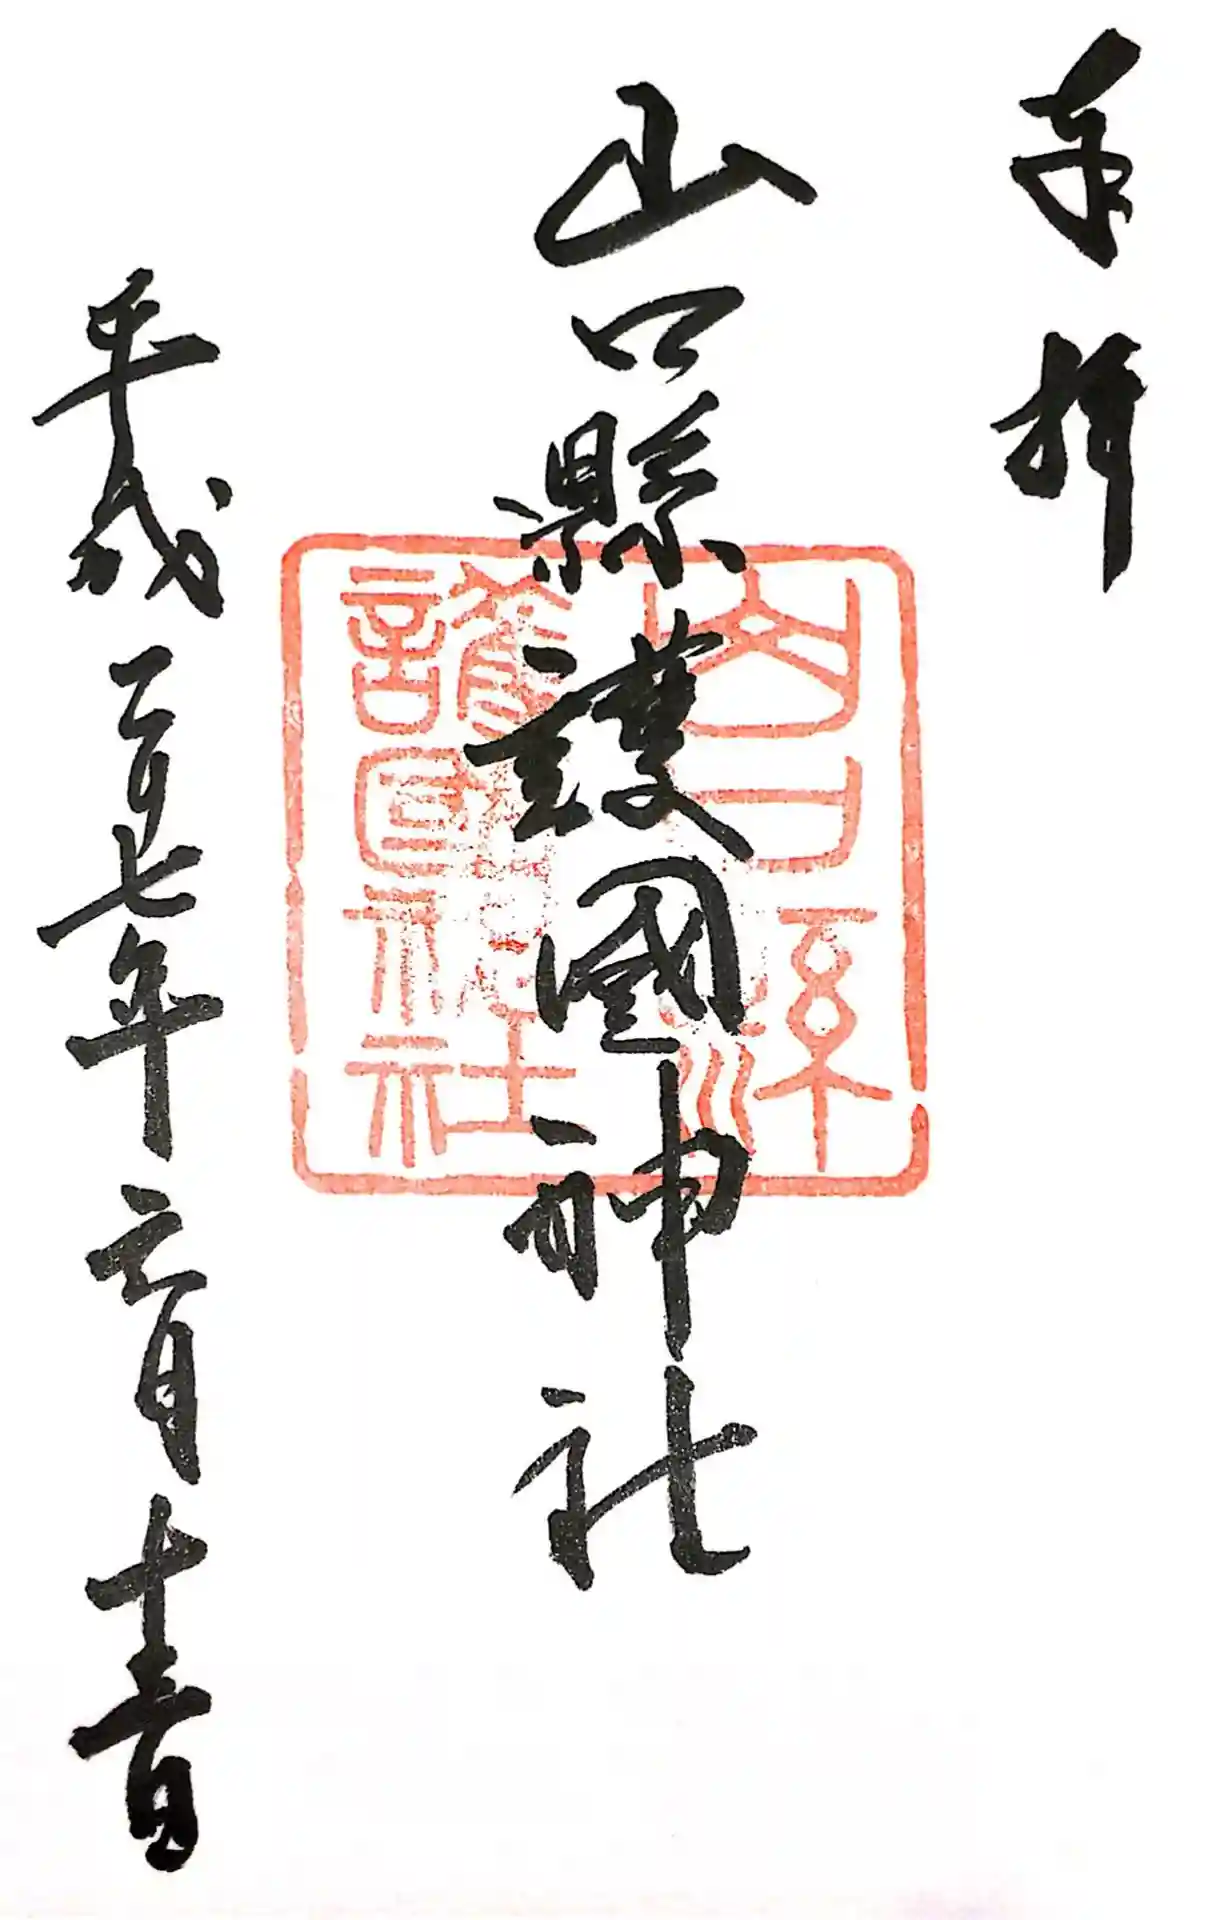 奉拝
山口縣護國神社
平成二十七年六月十日
山口縣
護國神社